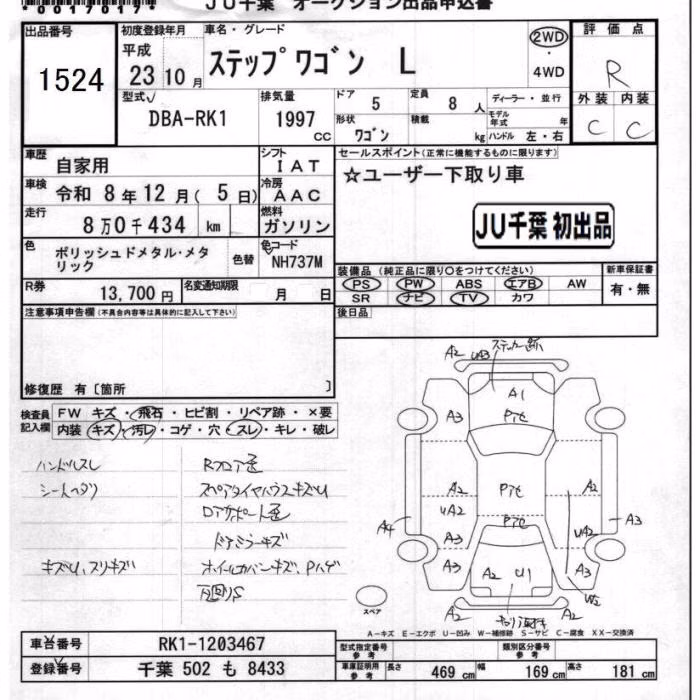 *0017017*
JU千葉 オークション出品申込書
出品番号
1524
初度登録年月
平成
23 10 月
車名・グレード
ステップワゴン L
2WD
・
4WD
評価点
R
外装 内装
C C
型式
DBA-RK1
排気量
1997 cc
ドア
5
定員
8 人
形状
ワゴン
積載
kg
ディーラー・並行
モデル年式 年
ハンドル 左・右
車歴
自家用
シフト
IAT
車検
令和 8 年 12 月( 5 日)
冷房
AAC
走行
8万0千434 km
燃料
ガソリン
色
ポリッシュドメタル・メタリック
色替
色コード
NH737M
R券
13,700 円
名変通知期限
月 日
セールスポイント(正常に機能するものに限ります)
☆ユーザー下取り車
JU千葉 初出品
装備品 (純正品に限り○をつけてください)
PS PW ABS エアB AW
SR ナビ TV カワ
新車保証書
有・無
後日品
注意事項申告欄(不具合内容等は具体的に記入して下さい)
修復歴 有〔箇所 〕
検査員記入欄
FW キズ・飛石・ヒビ割・リペア跡・×要
内装 キズ・汚レ・コゲ・穴・スレ・キレ・破レ
ハンドルスレ
シートヘタリ
キズU、スリキズ
Rフロア歪
スペアタイヤハウスキズU
ドアミラーキズ
ホイルカバーキズ、Pハゲ
A2 UA3 ステッカー跡
A1
A3 Pアセ A3
A2 Pアセ A2
UA2 Pアセ UA2
A4 A3
A3 A2 U1 A3
W2
A2 A2
スペア
A-キズ E-エクボ U-凹み W-補修跡 S-サビ C-腐食 XX-交換済
車台番号
RK1-1203467
登録番号
千葉 502 も 8433
型式指定番号
参考
類別区分番号
参考
車庫証明用
参考
長さ 469 cm 幅 169 cm 高さ 181 cm